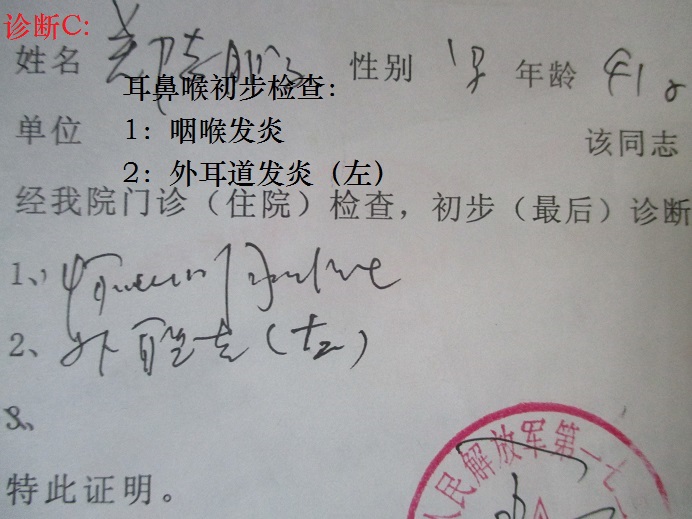 诊断C:
姓名 性别 年龄 41岁
耳鼻喉初步检查:
单位 1: 咽喉发炎 该同志
2: 外耳道发炎 (左)
经我院门诊（住院）检查，初步（最后）诊断
1、
2、外耳道炎(左)
3、
人民解放军第一七
特此证明。